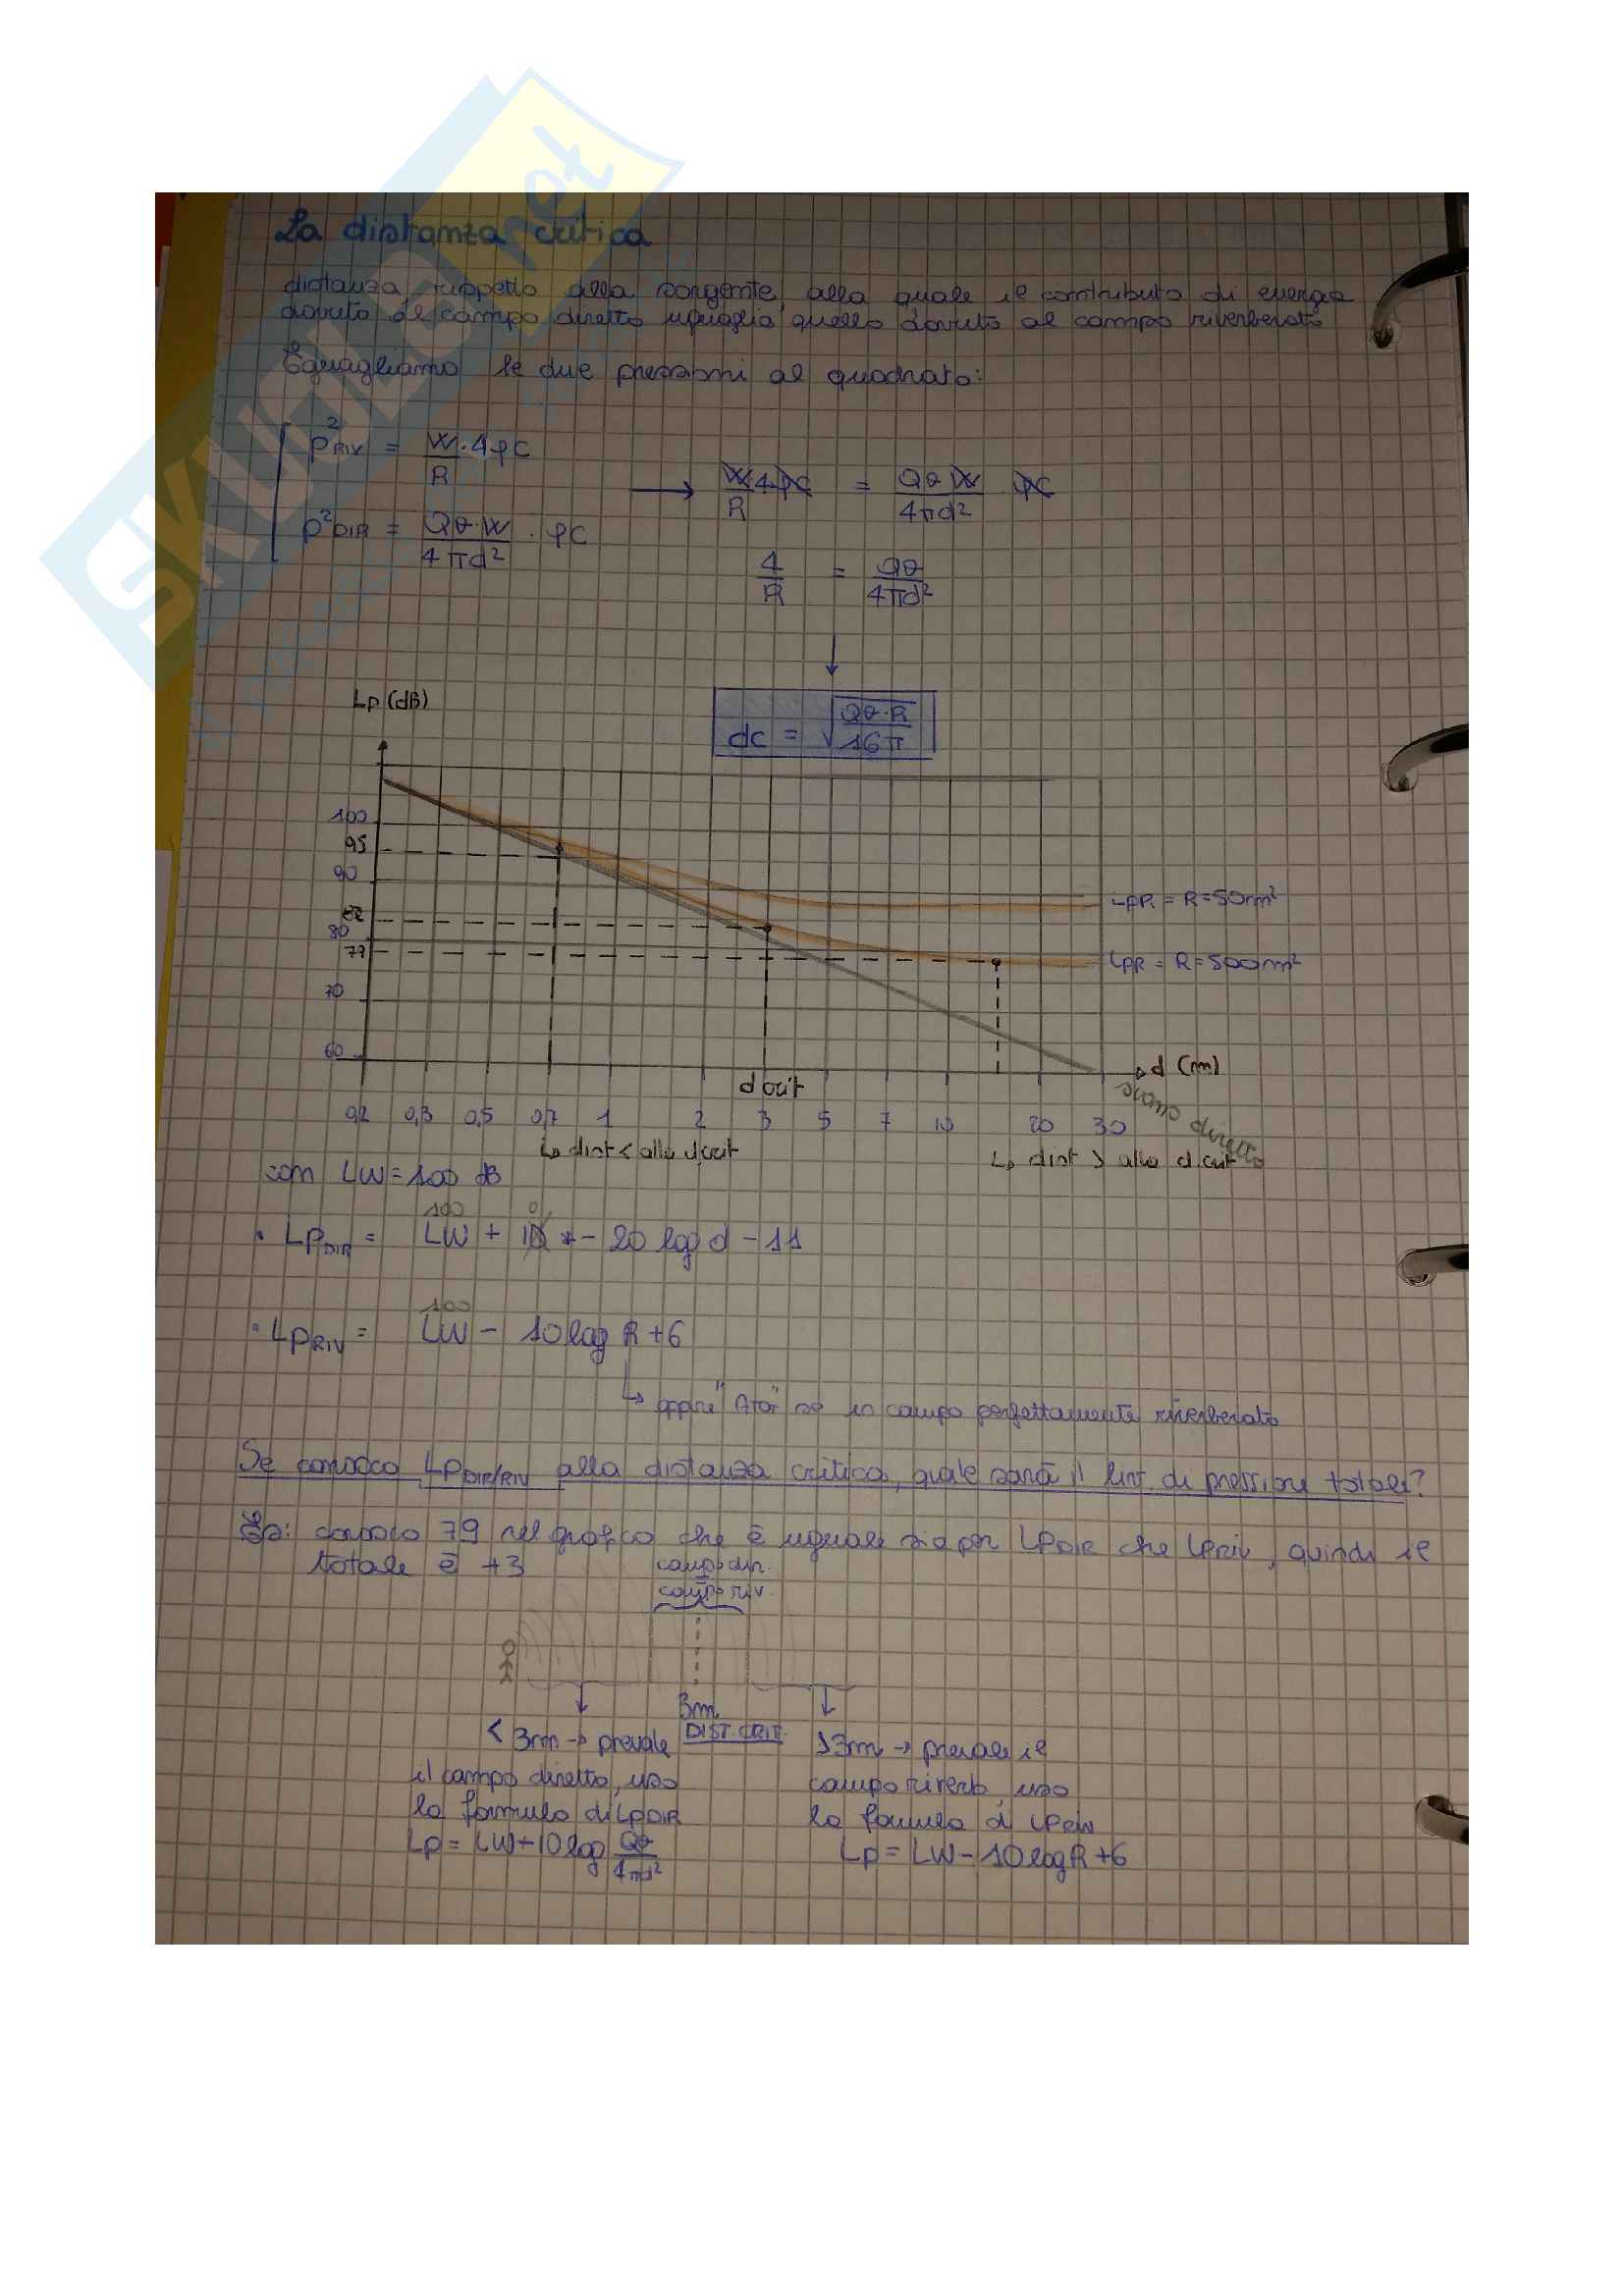 SKUOLA.net
La distanza critica
distanza rispetto alla sorgente, alla quale il contributo di energia
dovuto al campo diretto uguaglia quello dovuto al campo riverberato
Eguagliamo le due pressioni al quadrato:
p²RIV = W·4ρc / R → W4ρc / R = Qθ W / 4πd² ρc
p²DIR = Qθ·W / 4πd² · ρc
4 / R = Qθ / 4πd²
↓
dc = √(Qθ·R / 16π)
Lp (dB)
100
95
90
82
80
79
70
60
LpR = R=50m²
LpR = R=500m²
d (m)
d crit
0,2 0,3 0,5 0,7 1 2 3 5 7 10 20 30
suono diretto
↳ dist < alla d.crit
↳ dist > alla d.crit
con LW=100 dB
100 0
• LpDIR = LW + ID - 20 log d - 11
100
• LpRIV = LW - 10 log R + 6
↳ oppure "Atot" se in campo perfettamente riverberato
Se conosco LpDIR/RIV alla distanza critica, quale sarà il liv. di pressione totale?
Es: conosco 79 nel grafico che è uguale sia per LpDIR che LpRIV, quindi il
totale è +3
campo dir.
=
campo riv.
3m
DIST. CRIT.
< 3m → prevale
il campo diretto, uso
la formula di LpDIR
Lp = LW+10log Qθ / 4πd²
>3m → prevale il
campo riverb, uso
la formula di LpRIV
Lp = LW - 10 log R + 6